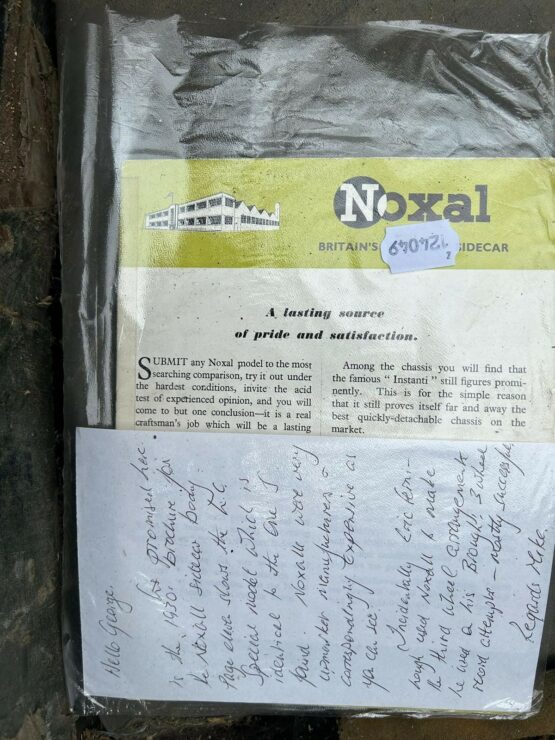 Noxal
BRITAIN'S
SIDECAR
124049
2
A lasting source
of pride and satisfaction.
SUBMIT any Noxal model to the most
searching comparison, try it out under
the hardest conditions, invite the acid
test of experienced opinion, and you will
come to but one conclusion—it is a real
craftsman's job which will be a lasting
Among the chassis you will find that
the famous " Instanti " still figures promi-
nently. This is for the simple reason
that it still proves itself far and away the
best quickly-detachable chassis on the
market.
Hello George
As promised here
is the 1930 Brochure for
the Noxall sidecar body.
Page eleven shows the
Special model which is
identical to the one I
found. Noxalls were very
manufacturers &
correspondingly expensive as
you can see
Incidentally Eric Fern-
hough used Noxall to make
the third wheel arrangements
he used on his Brough 3 wheel
record attempts - mostly successful
Regards Mike